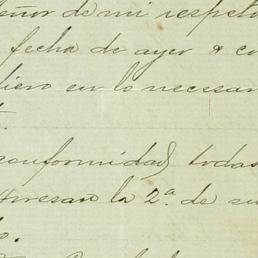 eñor de mi respeto
fecha de ayer & co
diero en lo necesar
conformidad todas
teresan la 2ª. de su
o.